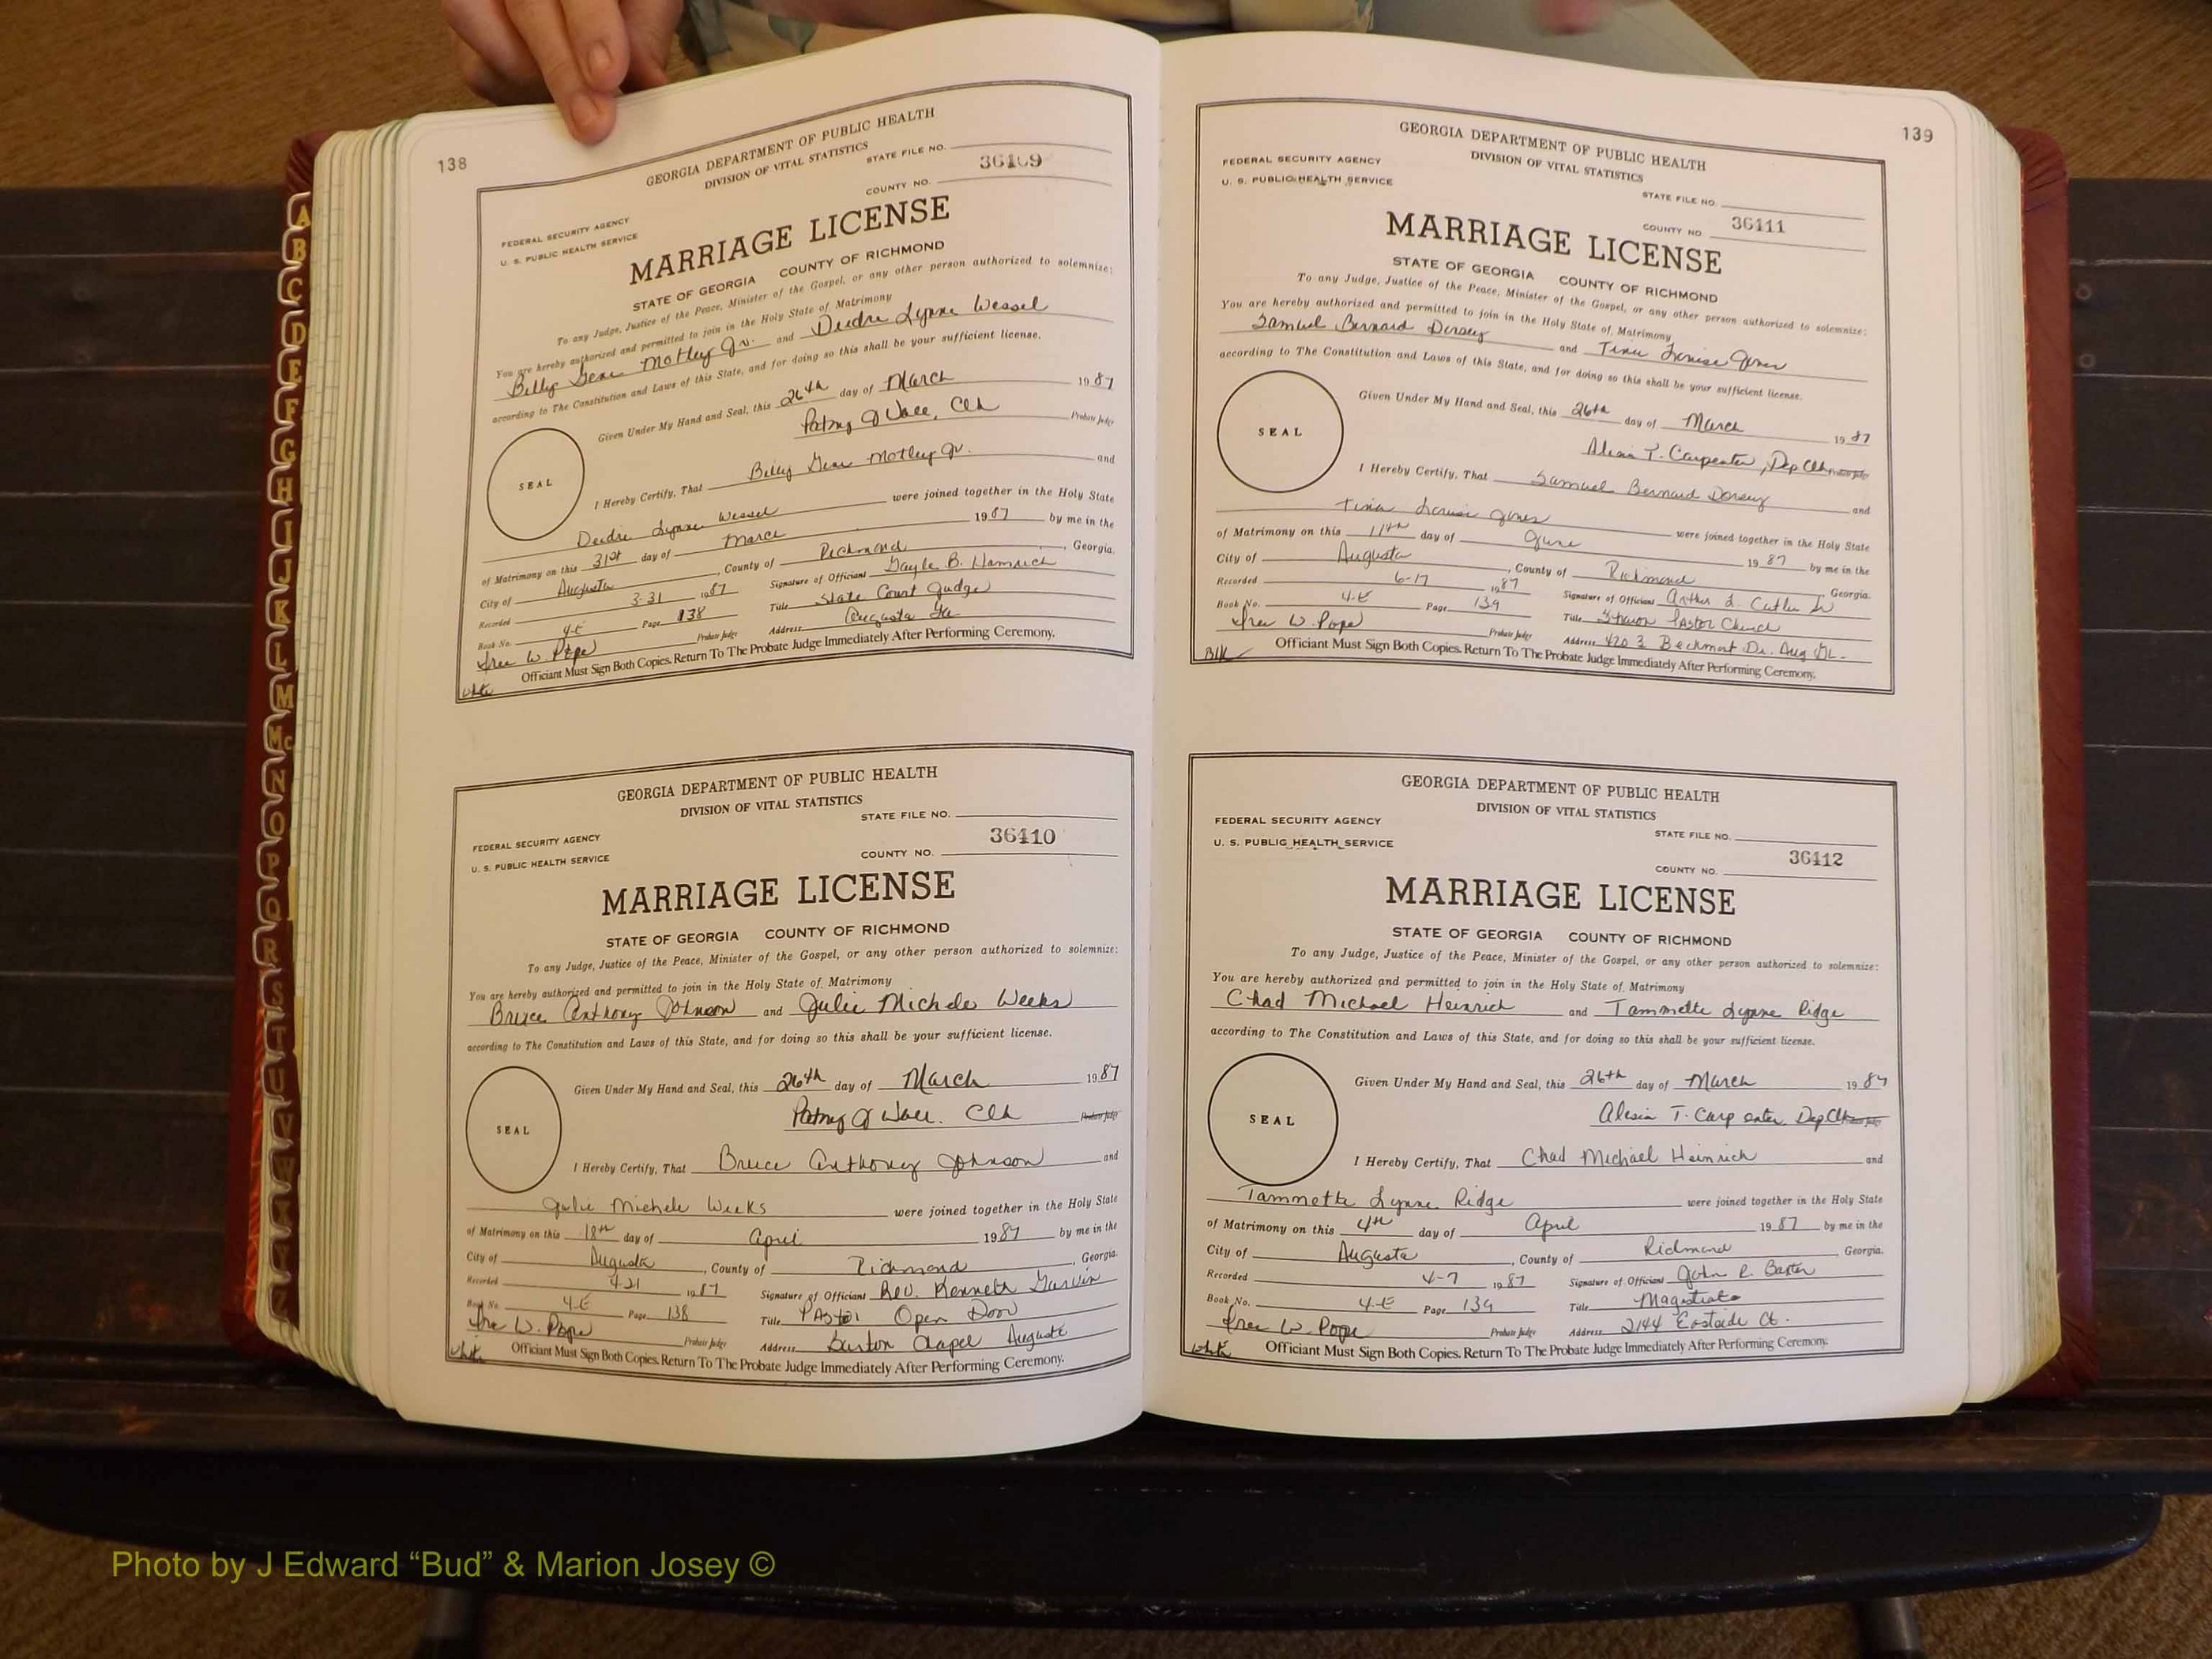 138
GEORGIA DEPARTMENT OF PUBLIC HEALTH
DIVISION OF VITAL STATISTICS
STATE FILE NO.
36409
COUNTY NO.
FEDERAL SECURITY AGENCY
U. S. PUBLIC HEALTH SERVICE
MARRIAGE LICENSE
STATE OF GEORGIA COUNTY OF RICHMOND
To any Judge, Justice of the Peace, Minister of the Gospel, or any other person authorized to solemnize:
You are hereby authorized and permitted to join in the Holy State of Matrimony
Billy Gene Motley Jr. and Deidre Lynne Wessel
according to The Constitution and Laws of this State, and for doing so this shall be your sufficient license.
Given Under My Hand and Seal, this 26th day of March 1987
Clk Probate Judge
SEAL
I Hereby Certify, That Billy Gene Motley Jr. and
Deidre Lynne Wessel were joined together in the Holy State
of Matrimony on this 31st day of March 1987 by me in the
City of Augusta, County of Richmond, Georgia.
Recorded 3-31 1987 Signature of Officiant Gayle B. Hamrick
Book No. 4-E Page 138 Title State Court Judge
W. Pope Probate Judge Address Augusta Ga
Officiant Must Sign Both Copies. Return To The Probate Judge Immediately After Performing Ceremony.
White
GEORGIA DEPARTMENT OF PUBLIC HEALTH
DIVISION OF VITAL STATISTICS
STATE FILE NO.
36410
COUNTY NO.
FEDERAL SECURITY AGENCY
U. S. PUBLIC HEALTH SERVICE
MARRIAGE LICENSE
STATE OF GEORGIA COUNTY OF RICHMOND
To any Judge, Justice of the Peace, Minister of the Gospel, or any other person authorized to solemnize:
You are hereby authorized and permitted to join in the Holy State of Matrimony
Bruce Anthony Johnson and Julie Michele Weeks
according to The Constitution and Laws of this State, and for doing so this shall be your sufficient license.
Given Under My Hand and Seal, this 26th day of March 1987
Clk Probate Judge
SEAL
I Hereby Certify, That Bruce Anthony Johnson and
Julie Michele Weeks were joined together in the Holy State
of Matrimony on this 18th day of April 1987 by me in the
City of Augusta, County of Richmond, Georgia.
Recorded 4-21 1987 Signature of Officiant Rev. Kenneth Garvin
Book No. 4-E Page 138 Title Pastor Open Door
W. Pope Probate Judge Address Barton Chapel Augusta
Officiant Must Sign Both Copies. Return To The Probate Judge Immediately After Performing Ceremony.
White
139
GEORGIA DEPARTMENT OF PUBLIC HEALTH
DIVISION OF VITAL STATISTICS
FEDERAL SECURITY AGENCY
U. S. PUBLIC HEALTH SERVICE
STATE FILE NO.
36411
COUNTY NO.
MARRIAGE LICENSE
STATE OF GEORGIA COUNTY OF RICHMOND
To any Judge, Justice of the Peace, Minister of the Gospel, or any other person authorized to solemnize:
You are hereby authorized and permitted to join in the Holy State of Matrimony
Samuel Bernard Dorsey and Tina Louise Jones
according to The Constitution and Laws of this State, and for doing so this shall be your sufficient license.
Given Under My Hand and Seal, this 26th day of March 1987
Alesia T. Carpenter, Dep Clk Probate Judge
SEAL
I Hereby Certify, That Samuel Bernard Dorsey and
Tina Louise Jones were joined together in the Holy State
of Matrimony on this 11th day of June 1987 by me in the
City of Augusta, County of Richmond Georgia.
Recorded 6-17 1987 Signature of Officiant Arthur L. Cutler
Book No. 4-E Page 139 Title Pastor Church
W. Pope Probate Judge Address Dr. Aug Ga.
Officiant Must Sign Both Copies. Return To The Probate Judge Immediately After Performing Ceremony.
Blk
GEORGIA DEPARTMENT OF PUBLIC HEALTH
DIVISION OF VITAL STATISTICS
FEDERAL SECURITY AGENCY
U. S. PUBLIC HEALTH SERVICE
STATE FILE NO.
36412
COUNTY NO.
MARRIAGE LICENSE
STATE OF GEORGIA COUNTY OF RICHMOND
To any Judge, Justice of the Peace, Minister of the Gospel, or any other person authorized to solemnize:
You are hereby authorized and permitted to join in the Holy State of Matrimony
Chad Michael Heinrich and Tammette Lynne Ridge
according to The Constitution and Laws of this State, and for doing so this shall be your sufficient license.
Given Under My Hand and Seal, this 26th day of March 1987
Alesia T. Carpenter, Dep Clk Probate Judge
SEAL
I Hereby Certify, That Chad Michael Heinrich and
Tammette Lynne Ridge were joined together in the Holy State
of Matrimony on this 4th day of April 1987 by me in the
City of Augusta, County of Richmond Georgia.
Recorded 4-7 1987 Signature of Officiant John R. Baxter
Book No. 4-E Page 139 Title Magistrate
W. Pope Probate Judge Address 2144 Eastside Ct.
Officiant Must Sign Both Copies. Return To The Probate Judge Immediately After Performing Ceremony.
White
A
B
C
D
E
F
G
H
I
J
K
L
M
Mc
N
O
P
Q
R
S
T
U
V
W
Photo by J Edward “Bud” & Marion Josey ©